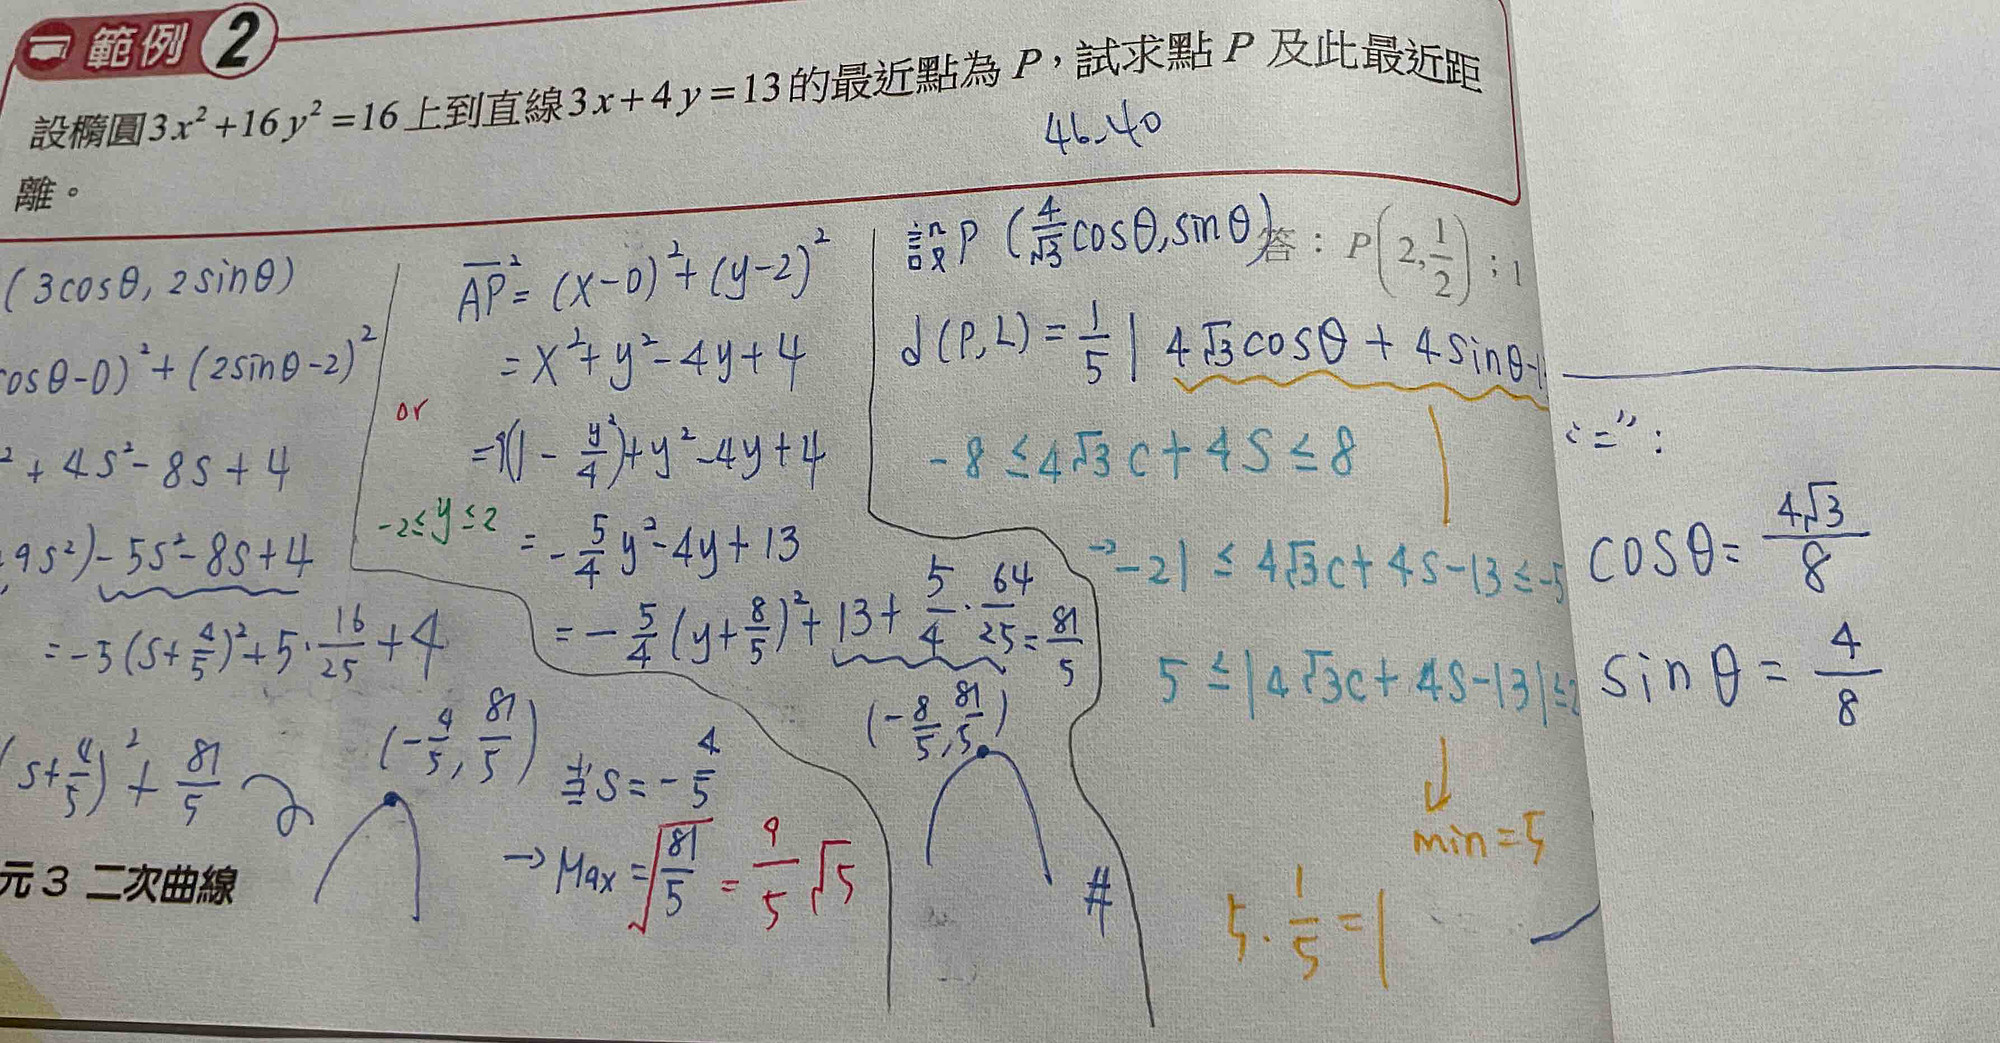 範例 2
設橢圓3x²+16y²=16上到直線3x+4y=13的最近點為 P，試求點 P 及此最近距
離。
46.40
(3cosθ, 2sinθ)
cosθ-0)²+(2sinθ-2)²
²+4s²-8s+4
9s²)-5s²-8s+4
=-5(s+4/5)²+5·16/25+4
(s+4/5)²+81/5
(-4/5, 81/5)
當s=-4/5
→Max=√(81/5)=9/5√5
or
AP²=(x-0)²+(y-2)²
=x²+y²-4y+4
=9(1-y²/4)+y²-4y+4
-2≤y≤2
=-5/4y²-4y+13
=-5/4(y+8/5)²+13+5/4·64/25=81/5
(-8/5, 81/5)
#
設P(4/√3cosθ,sinθ)
答：P(2,1/2)；1
d(P,L)=1/5|4√3cosθ+4sinθ-1
-8≤4√3c+4s≤8
→-21≤4√3c+4s-13≤-5
5≤|4√3c+4s-13|≤2
min=5
5·1/5=1
"=":
cosθ=4√3/8
sinθ=4/8
元3 二次曲線